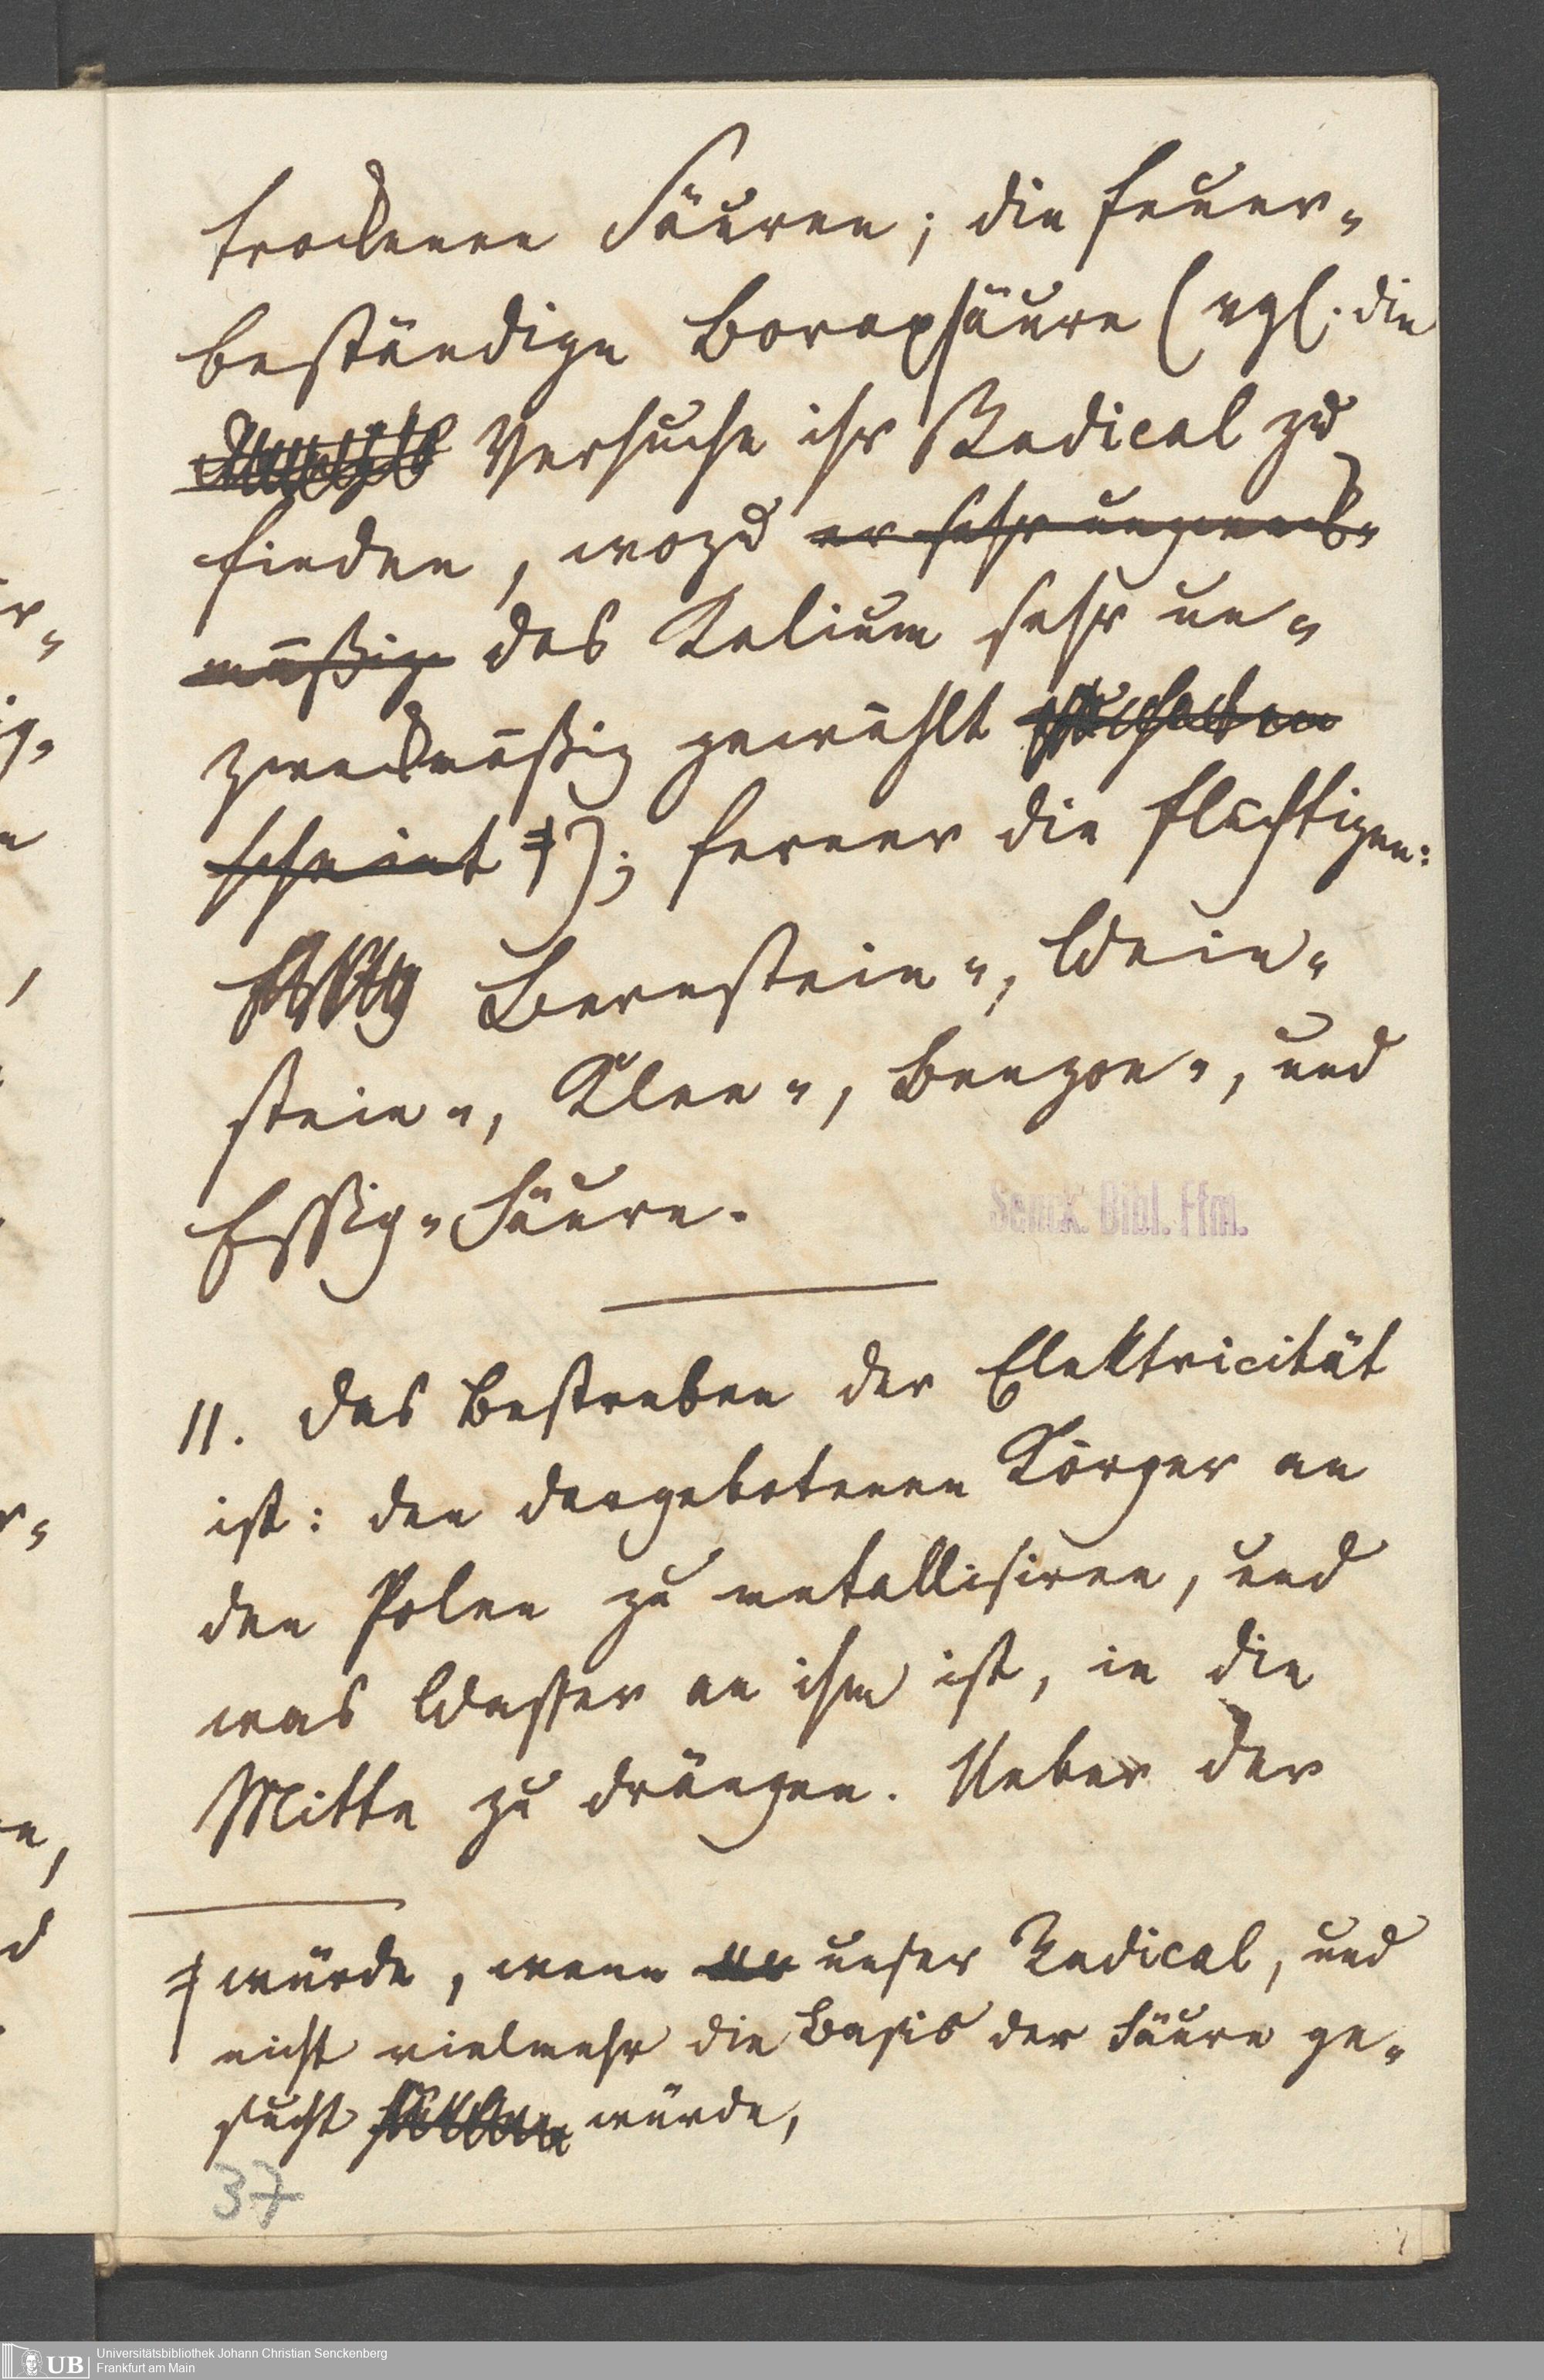 trockenen Säuren; die feuer-
beständige Boraxsäure (vgl. die
Versuche ihr Radical zu
finden, wozu er sehr unzweck-
mäßige das Kalium sehr un-
zweckmäßig gewählt
scheint ǂ); ferner die flüchtigen:
Bernstein-, Wein-
stein-, Klee-, Benzoe-, und
Essig-Säure.
11. Das Bestreben der Elektricität
ist: den dargebotenen Körper an
den Polen zu metallisiren, und
was Wasser an ihm ist, in die
Mitte zu drängen. Ueber der
ǂ würde, wenn unser Radical, und
nicht vielmehr die Basis der Säure ge-
sucht würde,
37
Senck. Bibl. Ffm.
UB Universitätsbibliothek Johann Christian Senckenberg
Frankfurt am Main